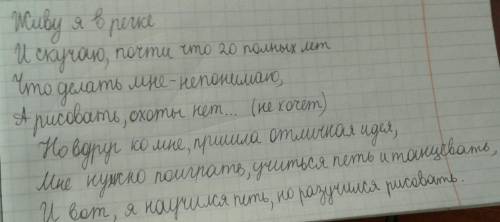 Живу я в речке
И скучаю, почти что 20 полных лет
Что делать мне - непонимаю,
А рисовать, охоты нет... (не хочет)
Но вдруг ко мне, пришла отличная идея,
Мне нужно поиграть, учиться петь и танцевать,
И вот, я научился петь, но разучился рисовать.